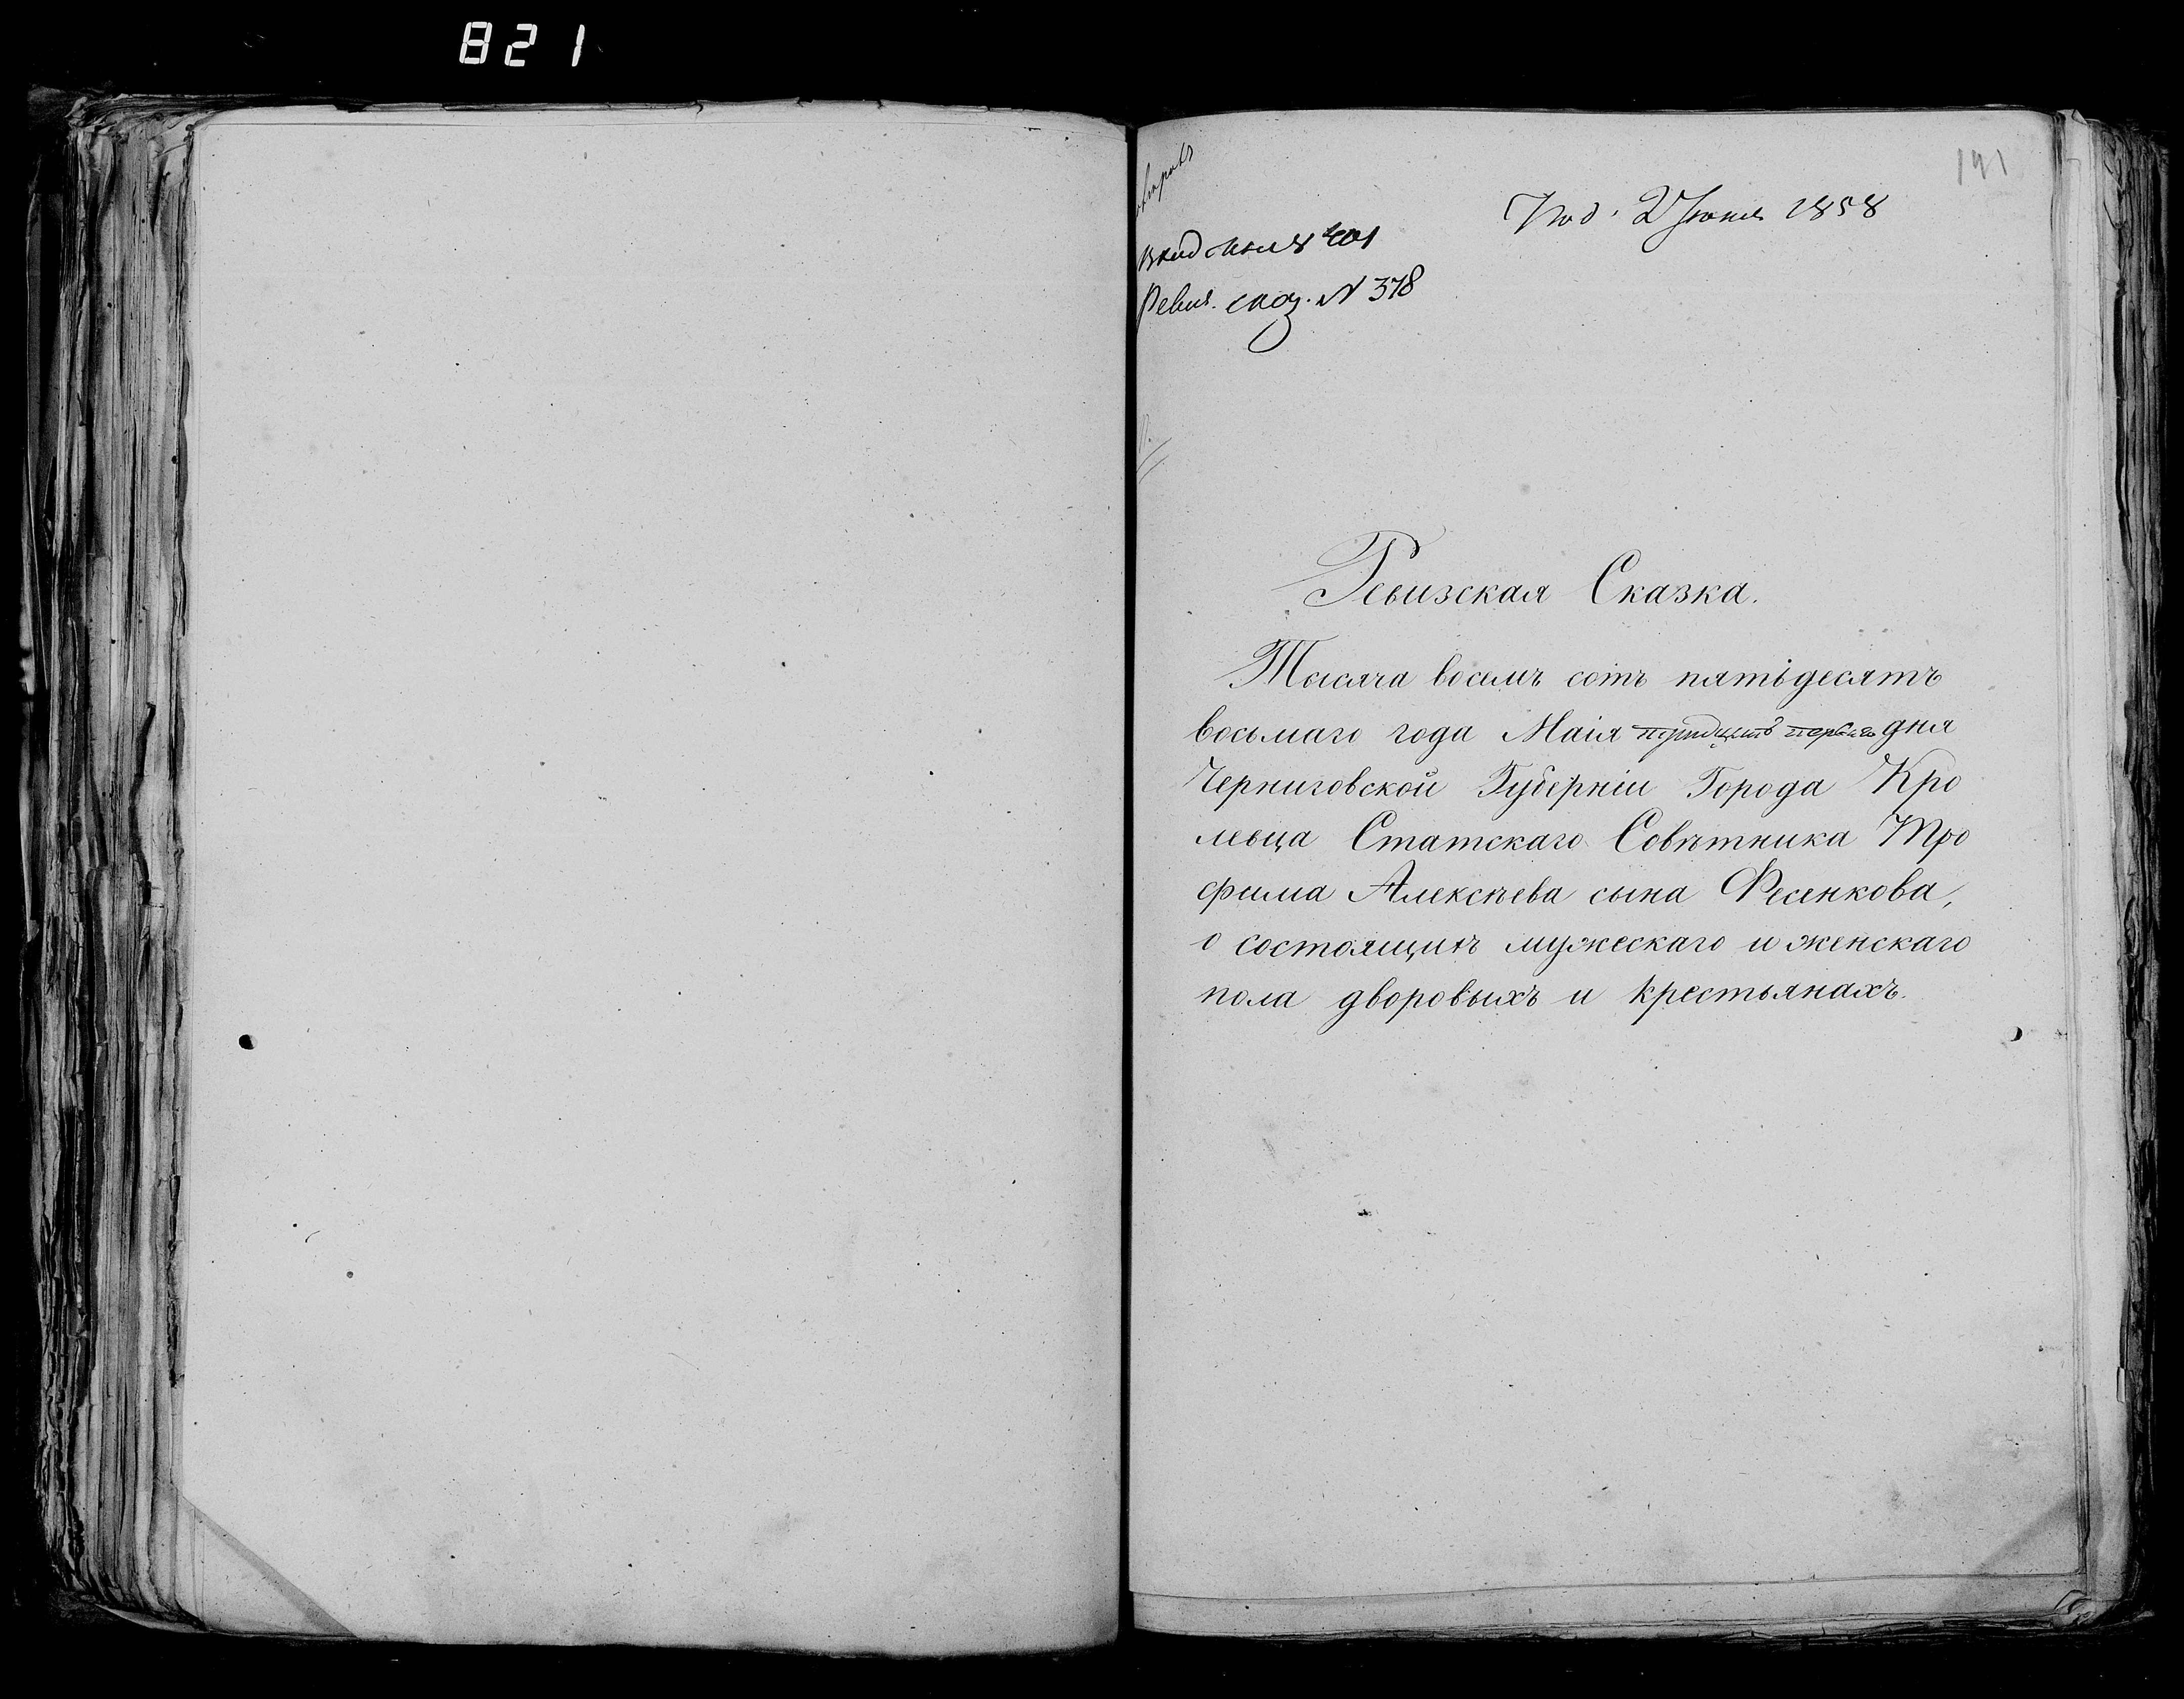 821
191
Под. 2 Июня 1858
Ревиз. сказ. № 378
Ревизская Сказка.
Тысяча восемъ сотъ пятьдесятъ
восьмаго года Маія тридцать перваго дня
Черниговской Губерніи Города Кро
левца Статскаго Совѣтника Тро
фима Алексѣева сына Фесенкова,
о состоящихъ мужескаго и женскаго
пола дворовыхъ и крестьянахъ.